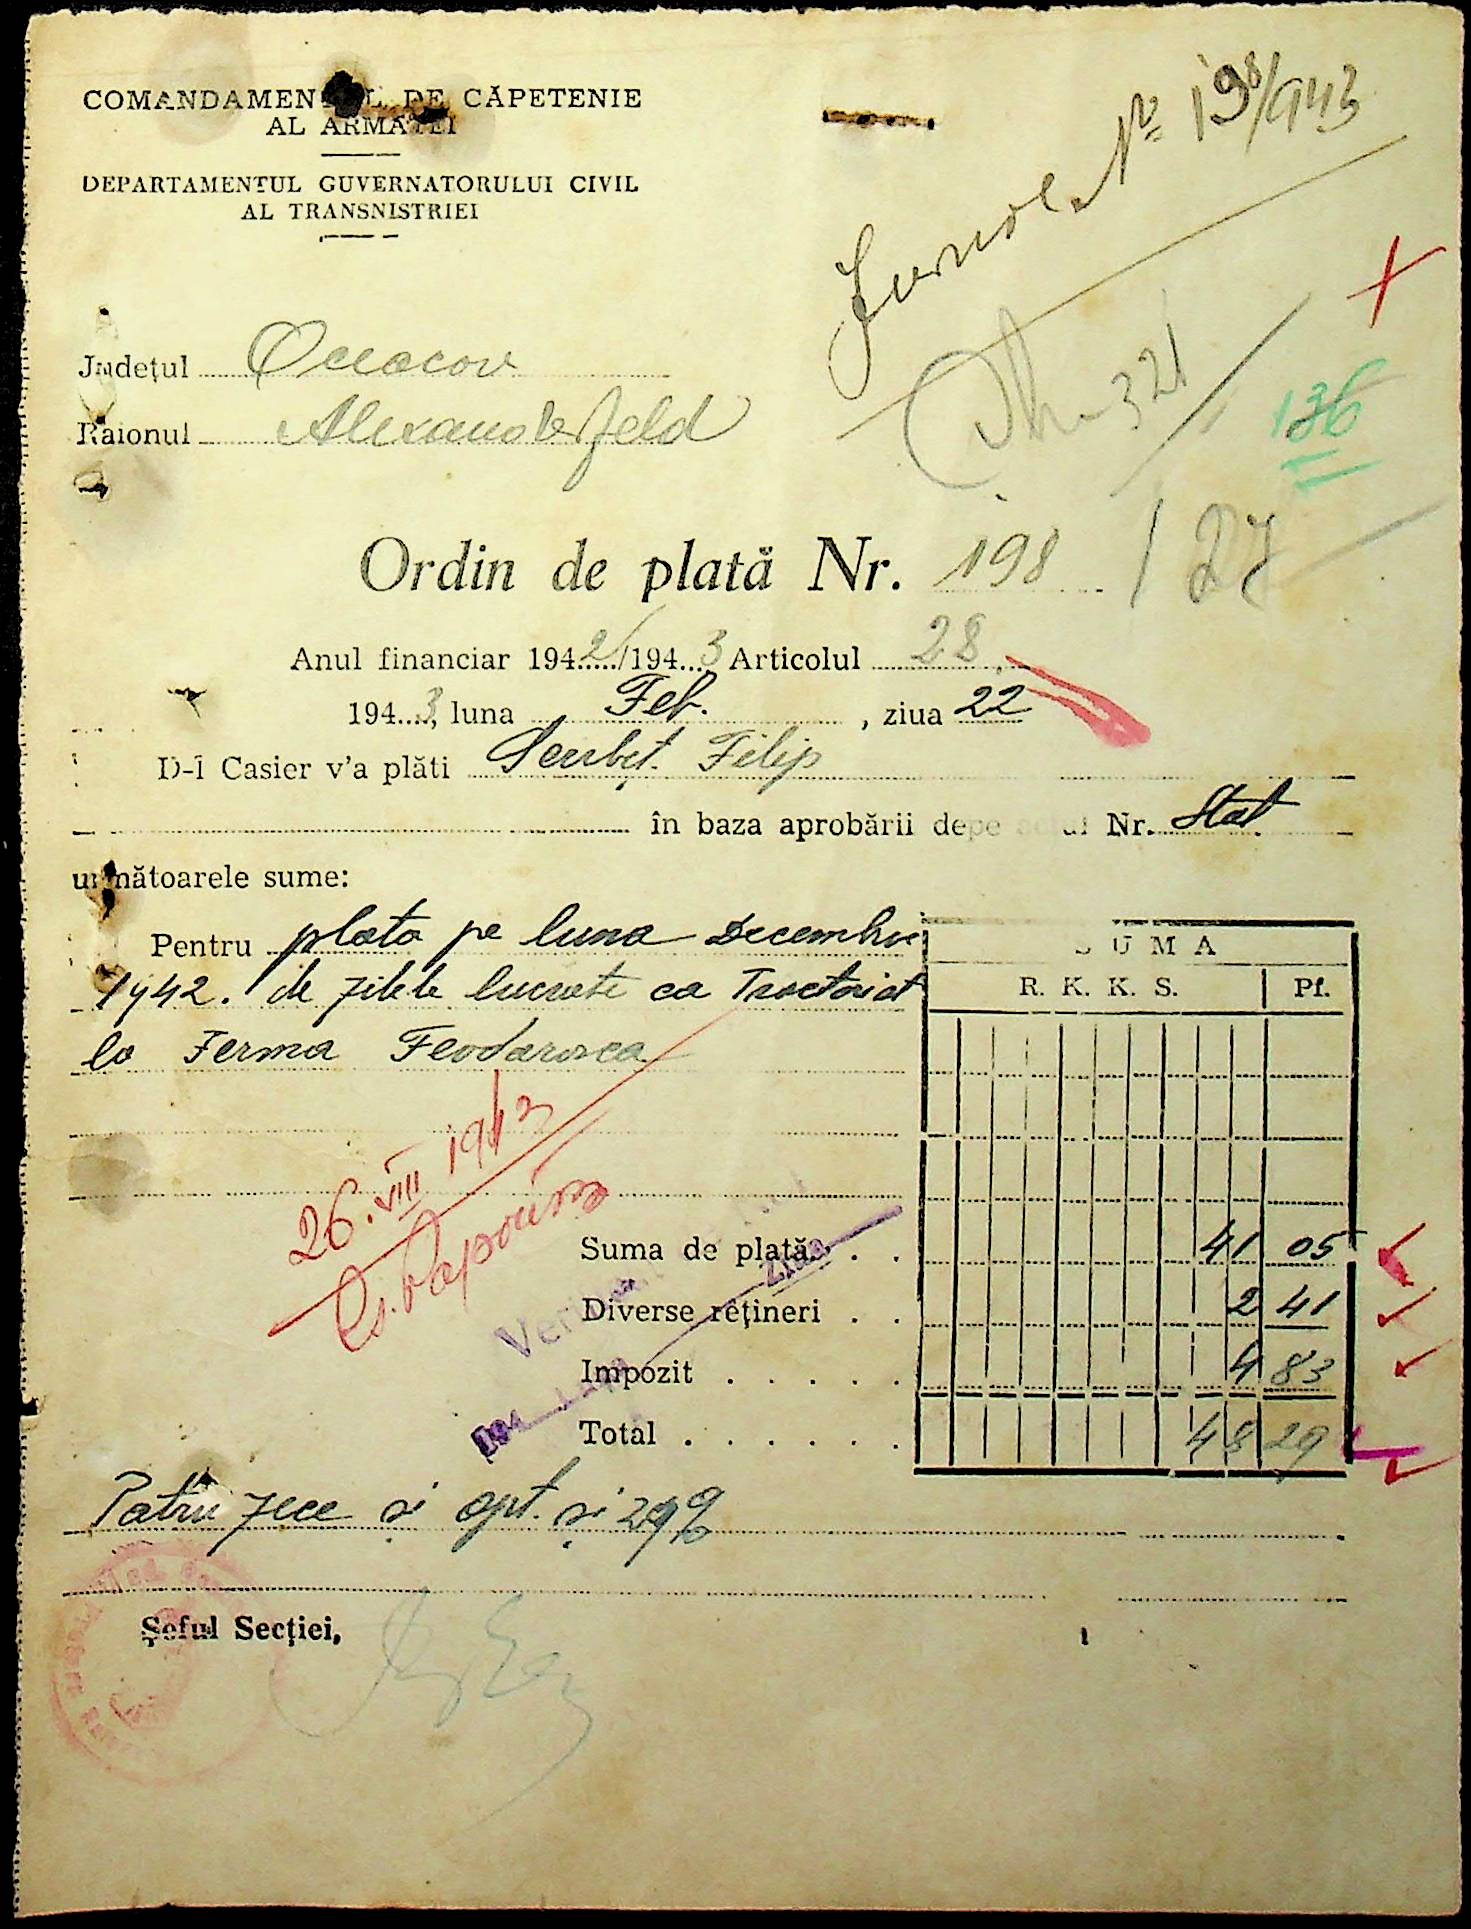 COMANDAMENTUL DE CĂPETENIE
AL ARMATEI
DEPARTAMENTUL GUVERNATORULUI CIVIL
AL TRANSNISTRIEI
Jurnal Nº 198/943
321
136
Județul Oceacov
Raionul Alexanderfeld
Ordin de plată Nr. 198 / 27
Anul financiar 1942/1943 Articolul 28
1943, luna Feb., ziua 22
D-l Casier v'a plăti Serbeț. Filip
în baza aprobării depe actul Nr. Stat
următoarele sume:
Pentru plata pe luna Decembrie
1942. de zilele lucrate ca Tractorist
la Ferma Feodarovca
SUMA
R. K. K. S. Pf.
26.VIII 1943
Suma de plată . . 41 05
Diverse rețineri . . 2 41
Impozit . . . . . 4 83
Total . . . . . . 48 29
194 Luna Ziua
Patru zece și opt. și 29%
Șeful Secției,